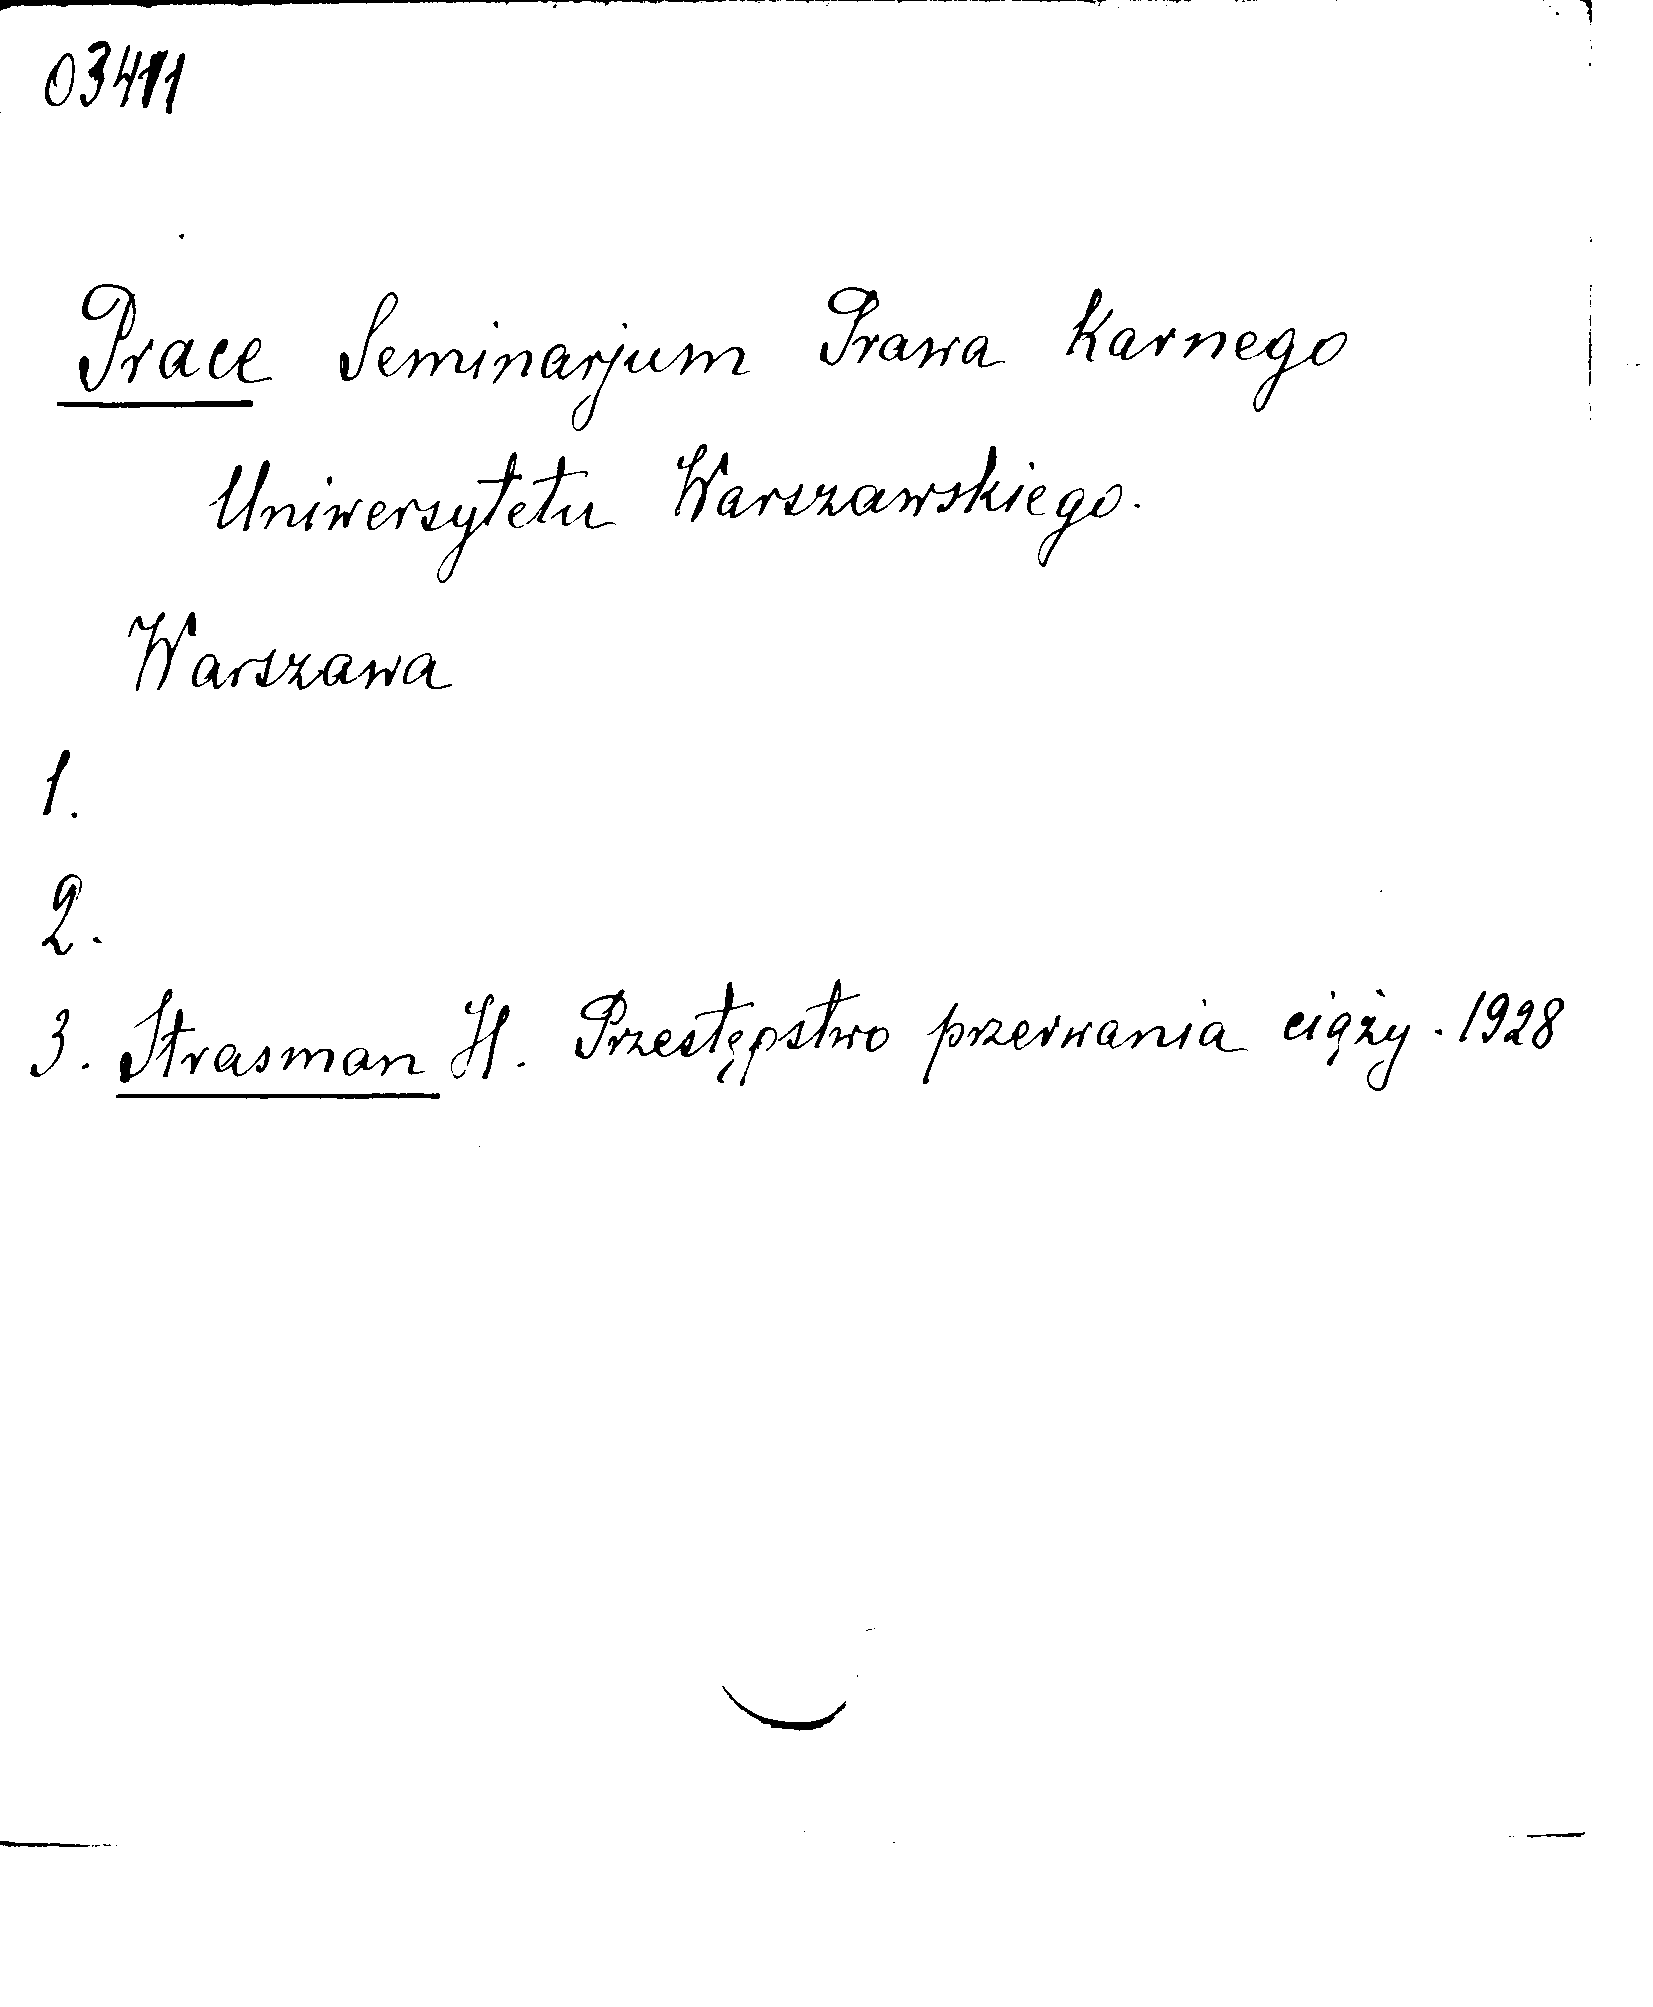 03411
Prace Seminarjum Prawa Karnego
Uniwersytetu Warszawskiego.
Warszawa
1.
2.
3. Strasman H. Przestępstwo przerwania ciąży. 1928